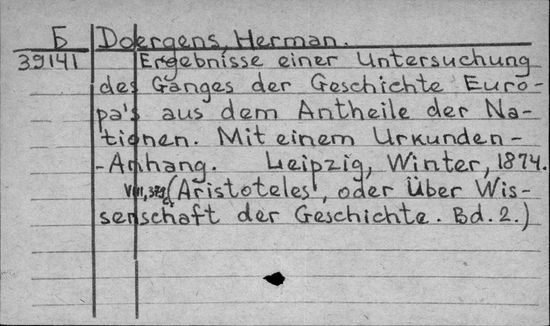 Б Doergens, Herman.
39141 Ergebnisse einer Untersuchung
des Ganges der Geschichte Euro-
pa's aus dem Antheile der Na-
tionen. Mit einem Urkunden-
-Anhang. Leipzig, Winter, 1874.
VIII, 379 (Aristoteles, oder Über Wis-
senschaft der Geschichte. Bd. 2.)